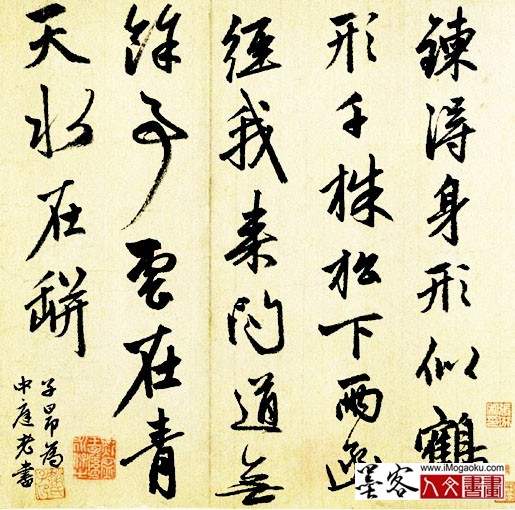 鍊得身形似鶴
形千株松下兩函
經我來問道無
餘事雲在青
天水在缾
子昂為
中庭老書
墨客
www.iMogaoku.com
人文書畫